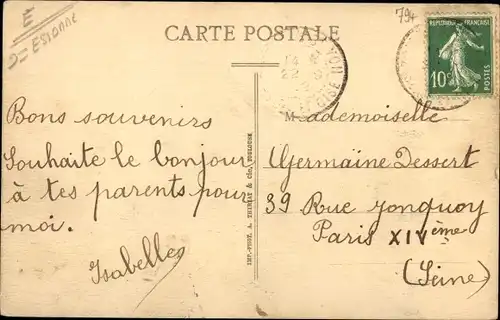 E
D= ESTONNE
794
CARTE POSTALE
REPUBLIQUE FRANÇAISE
10c
POSTES
Bons souvenirs
Souhaite le bonjour
à tes parents pour
moi.
Isabelle
IMP.-PHOT. A. THIRIAT & Cie, TOULOUSE
Mademoiselle
Germaine Dessert
39 Rue Jonquoy
Paris XIVème
(Seine)